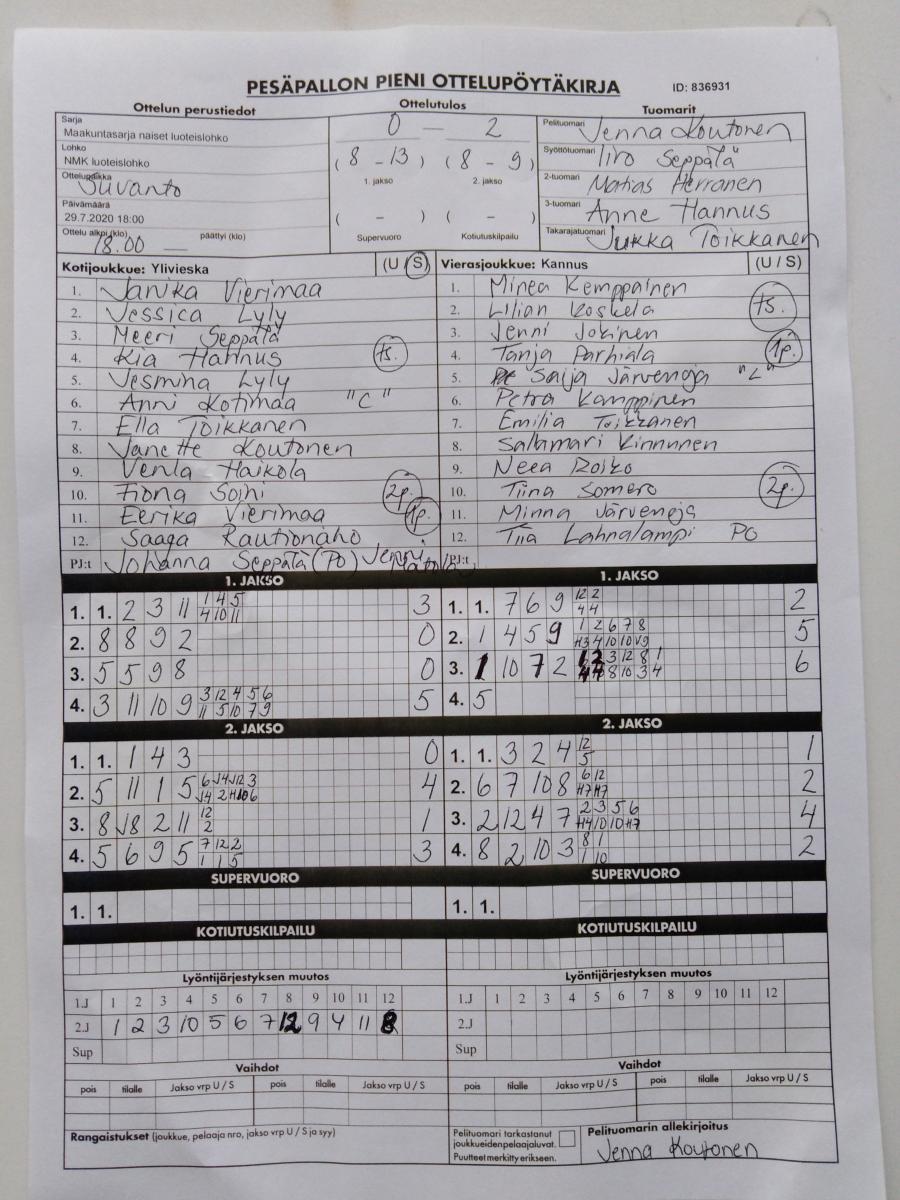 PESÄPALLON PIENI OTTELUPÖYTÄKIRJA ID: 836931
Ottelun perustiedot Ottelutulos Tuomarit
Sarja
Maakuntasarja naiset luoteislohko
Lohko
NMK luoteislohko
Ottelupaikka Suvanto
Päivämäärä
29.7.2020 18:00
Ottelu alkoi (klo) 18.00 — päättyi (klo)
0 — 2
(8 - 13) (8 - 9)
1. jakso 2. jakso
( - ) ( - )
Supervuoro Kotiutuskilpailu
Pelituomari Jenna Koutonen
Syöttötuomari Iiro Seppälä
2-tuomari Matias Herranen
3-tuomari Anne Hannus
Takarajatuomari Jukka Toikkanen
Kotijoukkue: Ylivieska (U / S)
1. Janika Vierimaa
2. Jessica Lyly
3. Meeri Seppälä
4. Kia Hannus ts.
5. Jesmina Lyly
6. Anni Kotimaa "C"
7. Ella Toikkanen
8. Janette Koutonen
9. Venla Haikola
10. Fiona Soini 2p.
11. Eerika Vierimaa 1p.
12. Saaga Rautionaho
PJ:t Johanna Seppälä (PO) Jenni
Vierasjoukkue: Kannus (U / S)
1. Minea Kemppainen
2. Lilian Koskela ts.
3. Jenni Jokinen
4. Tanja Parhiala 1p.
5. Saija Järvenoja "L"
6. Petra Kamppinen
7. Emilia Toikkanen
8. Salamari Kinnunen
9. Neea Roiko
10. Tiina Somero 2p.
11. Minna Järvenoja
12. Tiia Lahnalampi PO
PJ:t
1. JAKSO
1. 1. 2 3 11 1 4 5 3
4 10 11
2. 8 8 9 2 0
3. 5 5 9 8 0
4. 3 11 10 9 3 12 4 5 6 5
11 5 10 7 9
1. JAKSO
1. 1. 7 6 9 12 2 2
4 4
2. 1 4 5 9 1 2 6 7 8 5
3. 1 10 7 2 1 2 3 12 8 1 6
4. 5
2. JAKSO
1. 1. 1 4 3 0
2. 5 11 1 5 4
3. 8 J8 2 11 12 1
2
4. 5 6 9 5 7 12 2 3
1 1 5
2. JAKSO
1. 1. 3 2 4 12 1
5
2. 6 7 10 8 6 12 2
H7 H7
3. 2 12 4 7 2 3 5 6 4
H4 10 10 H7
4. 8 2 10 3 8 1 2
1 10
SUPERVUORO
1. 1.
SUPERVUORO
1. 1.
KOTIUTUSKILPAILU
KOTIUTUSKILPAILU
Lyöntijärjestyksen muutos
1.J 1 2 3 4 5 6 7 8 9 10 11 12
2.J 1 2 3 10 5 6 7 12 9 4 11 8
Sup
Lyöntijärjestyksen muutos
1.J 1 2 3 4 5 6 7 8 9 10 11 12
2.J
Sup
Vaihdot
pois tilalle Jakso vrp U / S pois tilalle Jakso vrp U / S
Vaihdot
pois tilalle Jakso vrp U / S pois tilalle Jakso vrp U / S
Rangaistukset (joukkue, pelaaja nro, jakso vrp U / S ja syy)
Pelituomari tarkastanut
joukkueidenpelaajaluvat.
Puutteet merkitty erikseen.
Pelituomarin allekirjoitus
Jenna Koutonen